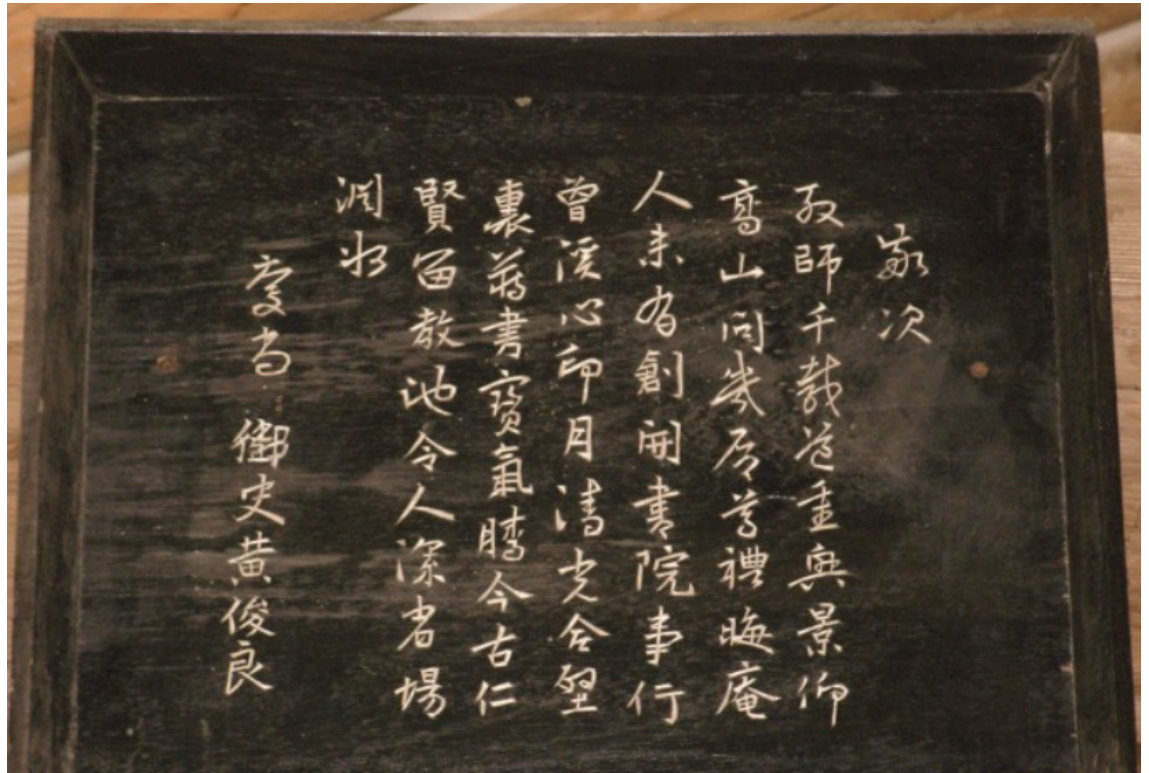 敬次
師千載道重興景仰
高山問幾层尊禮晦庵
人未有創開書院事行
曾溪心印月清光合壁
裏藏書寶氣騰今古仁
賢留教地令人深省惕
淵氷
御史黄俊良